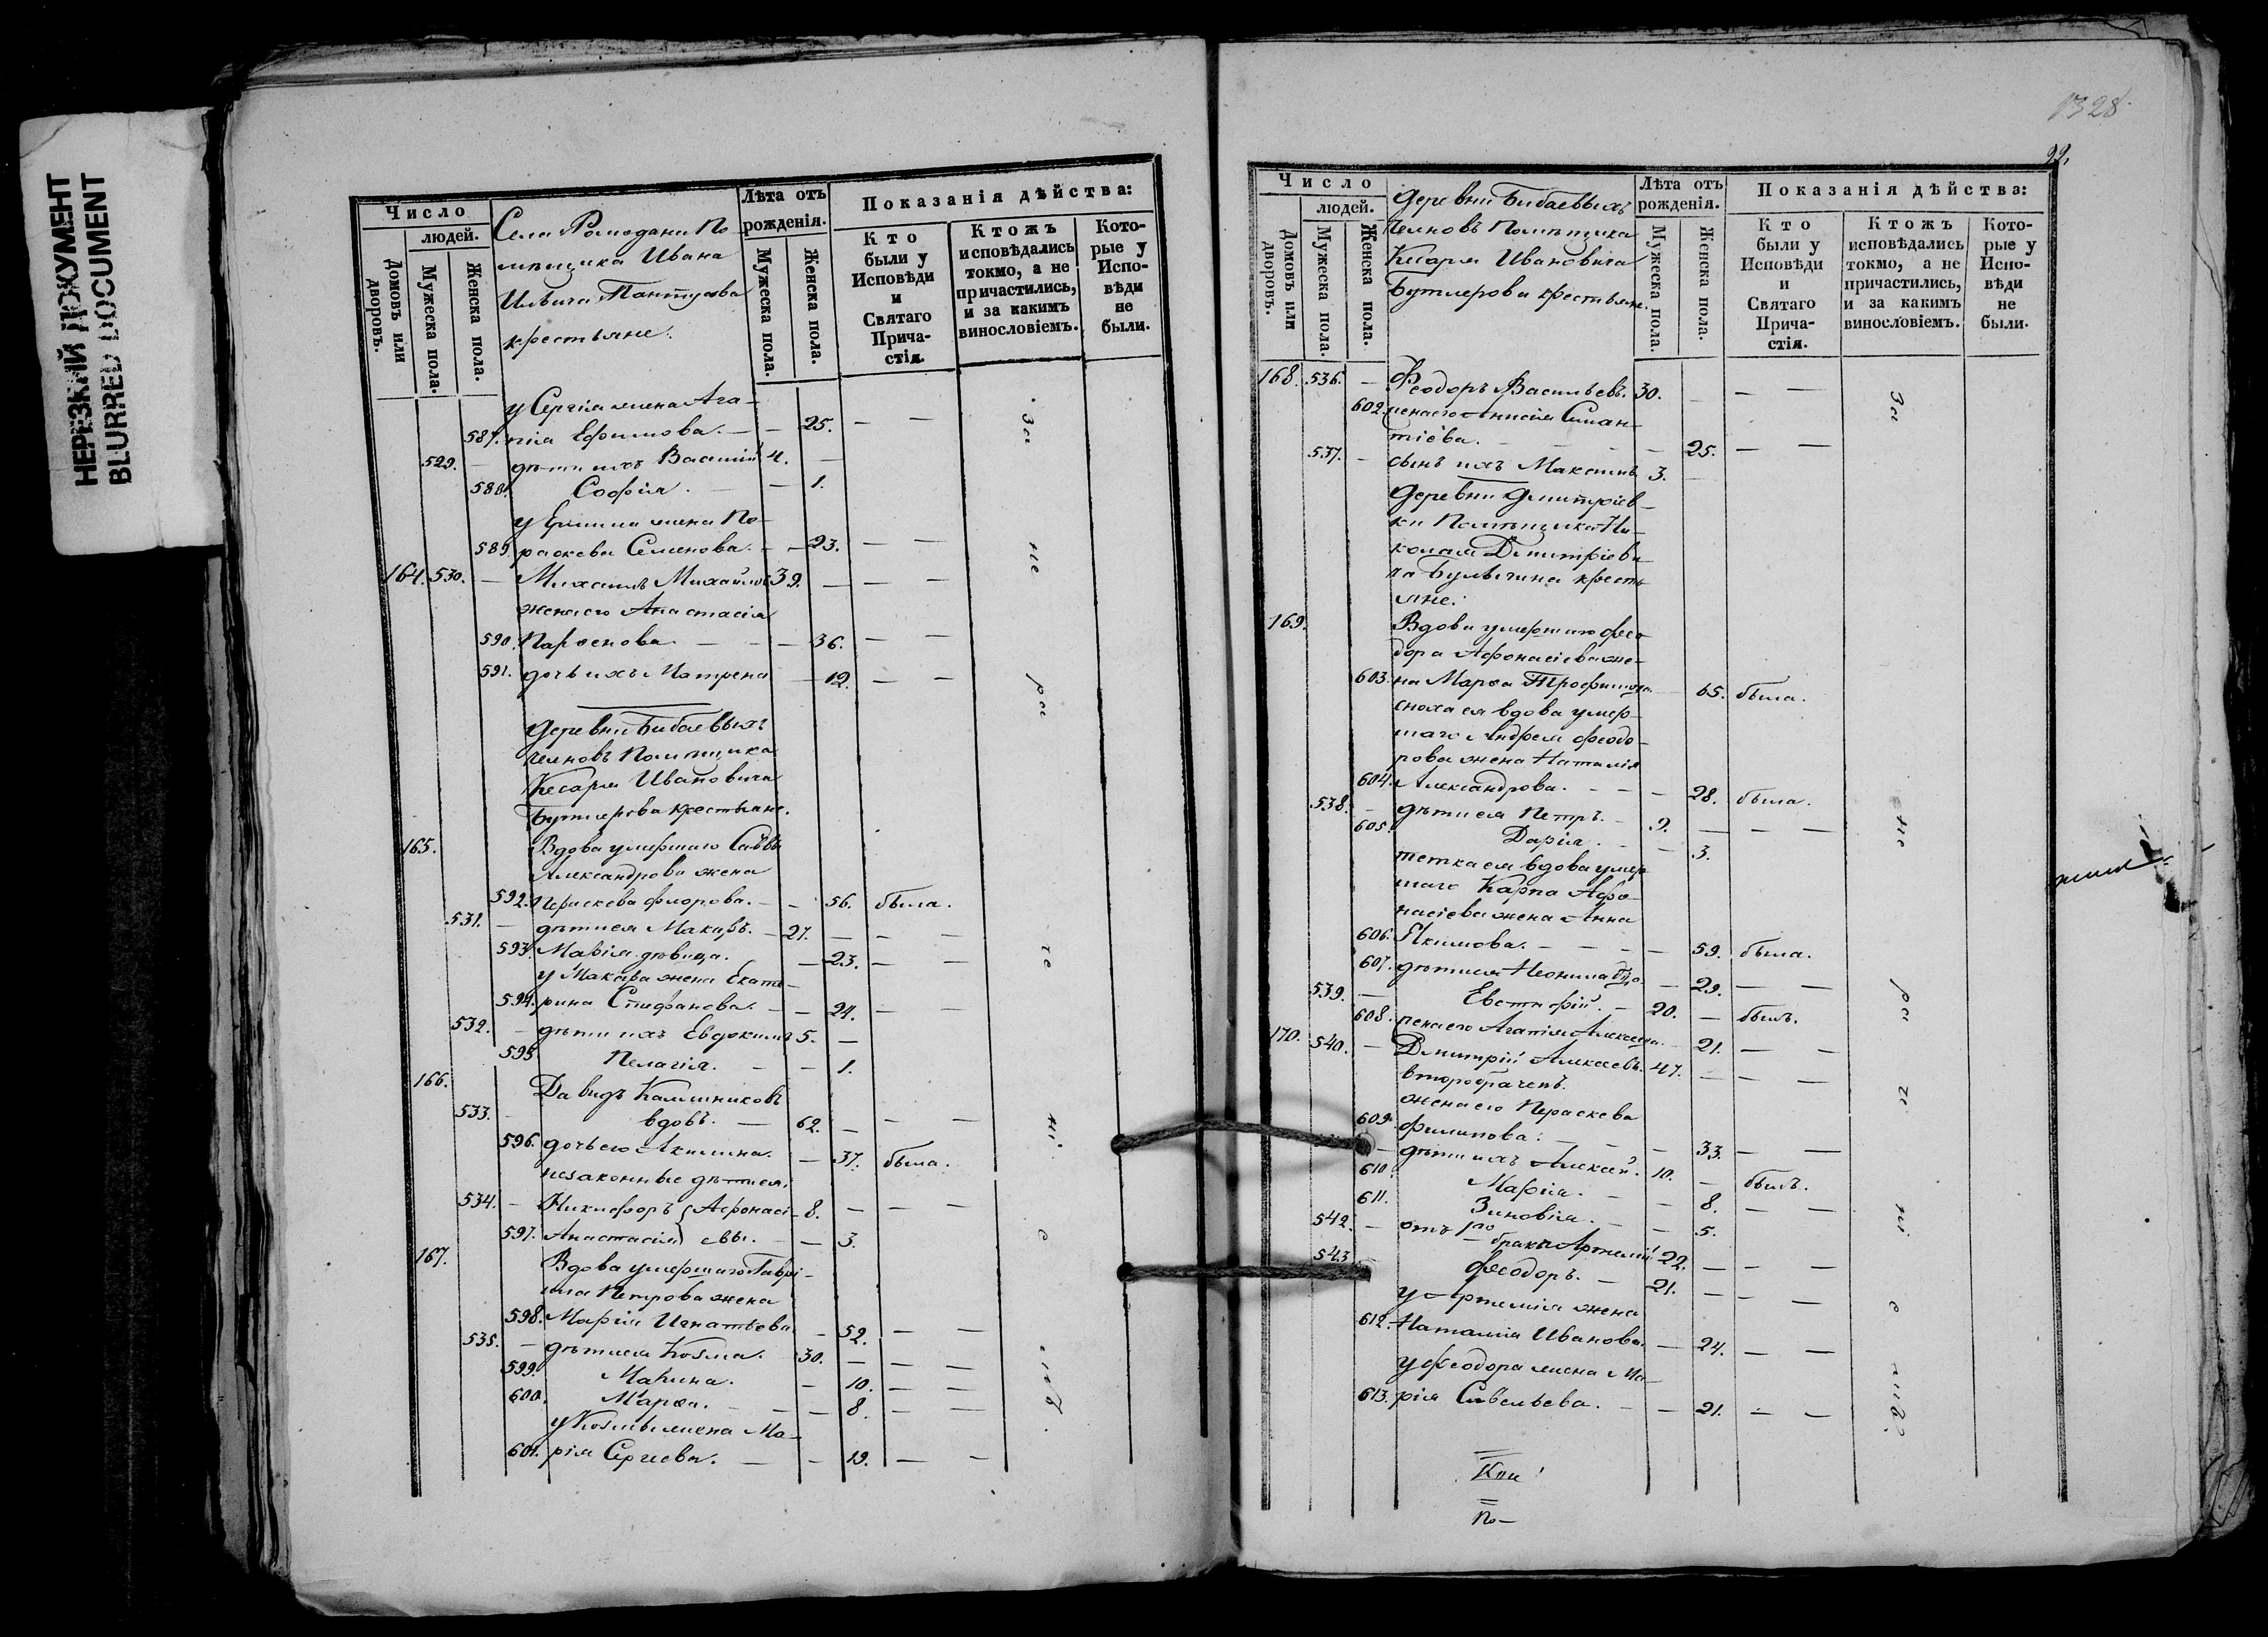 НЕРЕЗКИЙ ДОКУМЕНТ
BLURRED DOCUMENT
Число
людей.
Домовъ или дворовъ.
Мужеска пола.
Женска пола.
Села Ромодана По
мѣщика Ивана
Ильича
крестьяне.
Лѣта отъ рожденія.
Мужеска пола.
Женска пола.
Показанія дѣйства:
Кто были у Исповѣди и Святаго Прича-стія.
Ктожъ исповѣдались токмо, а не причастились, и за какимъ винословіемъ.
Кото-рые у Испо-вѣди не были.
у Сергія жена Ага-
587. пія Ефимова. — — 25. — —
529. — дѣти ихъ Василій 4. —
588. Софія. — — 1.
у жена Па-
589. раскева Семенова. — — 23. — —
164. 530. — Михаилъ Михайловъ 39. — — —
жена его Анастасія
590. Парѳенова — — 36. — —
591. дочь ихъ Матрена — 12. — —
Деревни Бибаевыхъ
Челновъ Помѣщика
Кесаря Ивановича
Бутлерова крестьяне.
165. Вдова умершаго Саввы
Александрова жена
592. Параскева Флорова. — — 56. была.
531. — дѣти ея Макаръ. — 27. — — —
593. Марія дѣвица. — 23. — —
у Макара жена Екате-
594. рина Стефанова. — — 24. — —
532. — дѣти ихъ Евдокимъ 5. —
595. Пелагія. — — 1.
166. Давидъ Калинниковъ
533. — вдовъ. — 62. — — —
596. дочь его Акилина. — 37. была.
незаконные дѣти ея.
534. — Никифоръ } Афонасі- 8. — — —
597. Анастасія } евы. — — 3.
167. Вдова умершаго Гаврі-
ила Петрова жена
598. Марія Игнатьева — 52. — —
535. — дѣти ея Козма. 30. — — —
599. Марина. — 10. — —
600. Марѳа. — — 8. — —
у Козмы жена Ма-
601. рія Сергѣева. — — 19. — —
за
не
ра
че
ні
е
мъ.
1328
92.
Число
людей.
Домовъ или дворовъ.
Мужеска пола.
Женска пола.
Деревни Бибаевыхъ
Челновъ Помѣщика
Кесаря Ивановича
Бутлерова крестьяне.
Лѣта отъ рожденія.
Мужеска пола.
Женска пола.
Показанія дѣйства:
Кто были у Исповѣди и Святаго Прича-стія.
Ктожъ исповѣдались токмо, а не причастились, и за какимъ винословіемъ.
Кото-рые у Испо-вѣди не были.
168. 536. — Ѳеодоръ Васильевъ. 30. — — —
602. жена его Анисія
— 25. — —
537. — сынъ ихъ Максимъ 3. —
Деревни Дмитріев-
ки Помѣщика Ни-
колая Дмитріеви-
ча Булыгина кресть-
яне.
169. Вдова умершаго Ѳео-
дора Афонасіева же-
603. на Марѳа Трофимова — 65. была.
сноха ея вдова умер-
шаго Андрея Ѳеодо-
рова жена Наталія
604. Александрова. — — — 28. была.
538. — дѣти ея Петръ. — 9. — — —
605. Дарія. — — 3.
тетка ея вдова умер
шаго Карпа Афо-
насіева жена Анна
606. Якимова. — — — 59. была.
607. дѣти ея Неонила — 29. — —
539. — Евстафій. — 20. — былъ.
608. жена его Агафія Алексѣева. 21. — —
170. 540. — Дмитрій Алексѣевъ. 47. — — —
второбраченъ.
жена его Параскева
609. Филипова. — — — 33. — —
— дѣти ихъ Алексѣй. 10. — былъ.
610. Марія. — — 8. — —
611. Зиновія. — — 5.
542. — отъ 1го брака Артемій 22. — — —
543. — Ѳеодоръ. — 21. — — —
у Артемія жена
612. Наталія Иванова. — 24. — —
у Ѳеодора жена Ма-
613. рія Савельева. — — 21. — —
за
не
ра
че
ні
е
мъ.
По-